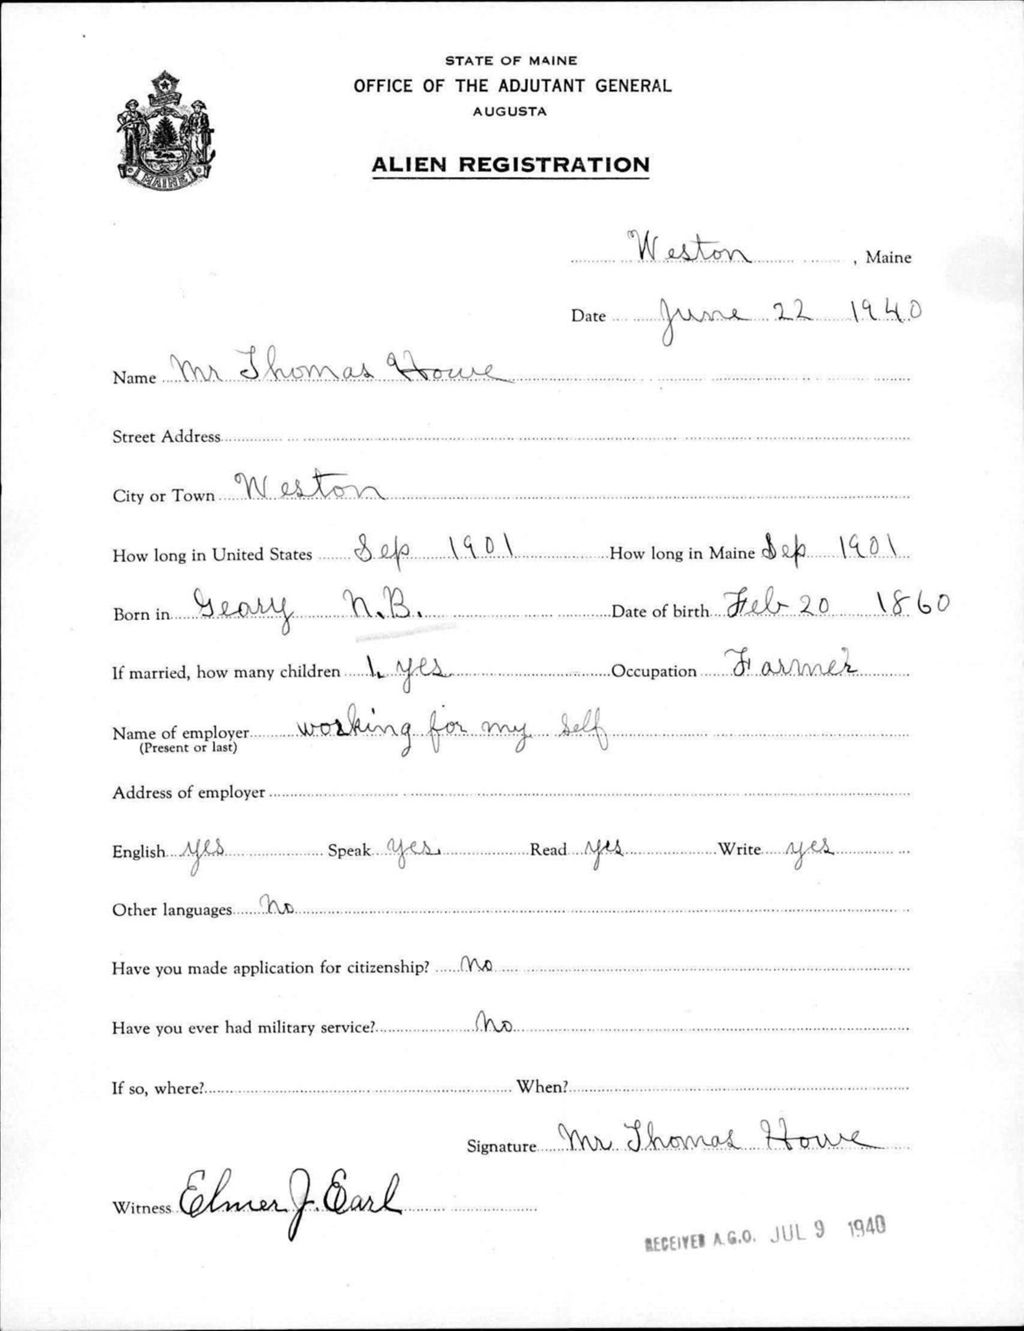 STATE OF MAINE
OFFICE OF THE ADJUTANT GENERAL
AUGUSTA
ALIEN REGISTRATION
MAINE
Weston, Maine
Date June 22 1940
Name Mr Thomas Howe
Street Address
City or Town Weston
How long in United States Sep 1901 How long in Maine Sep 1901
Born in Geary N.B. Date of birth Feb 20 1860
If married, how many children 1, yes Occupation Farmer
Name of employer working for my self
(Present or last)
Address of employer
English yes Speak yes Read yes Write yes
Other languages No
Have you made application for citizenship? No
Have you ever had military service? No
If so, where? When?
Signature Mr Thomas Howe
Witness Elmer J. Earl
RECEIVED A.G.O. JUL 9 1940